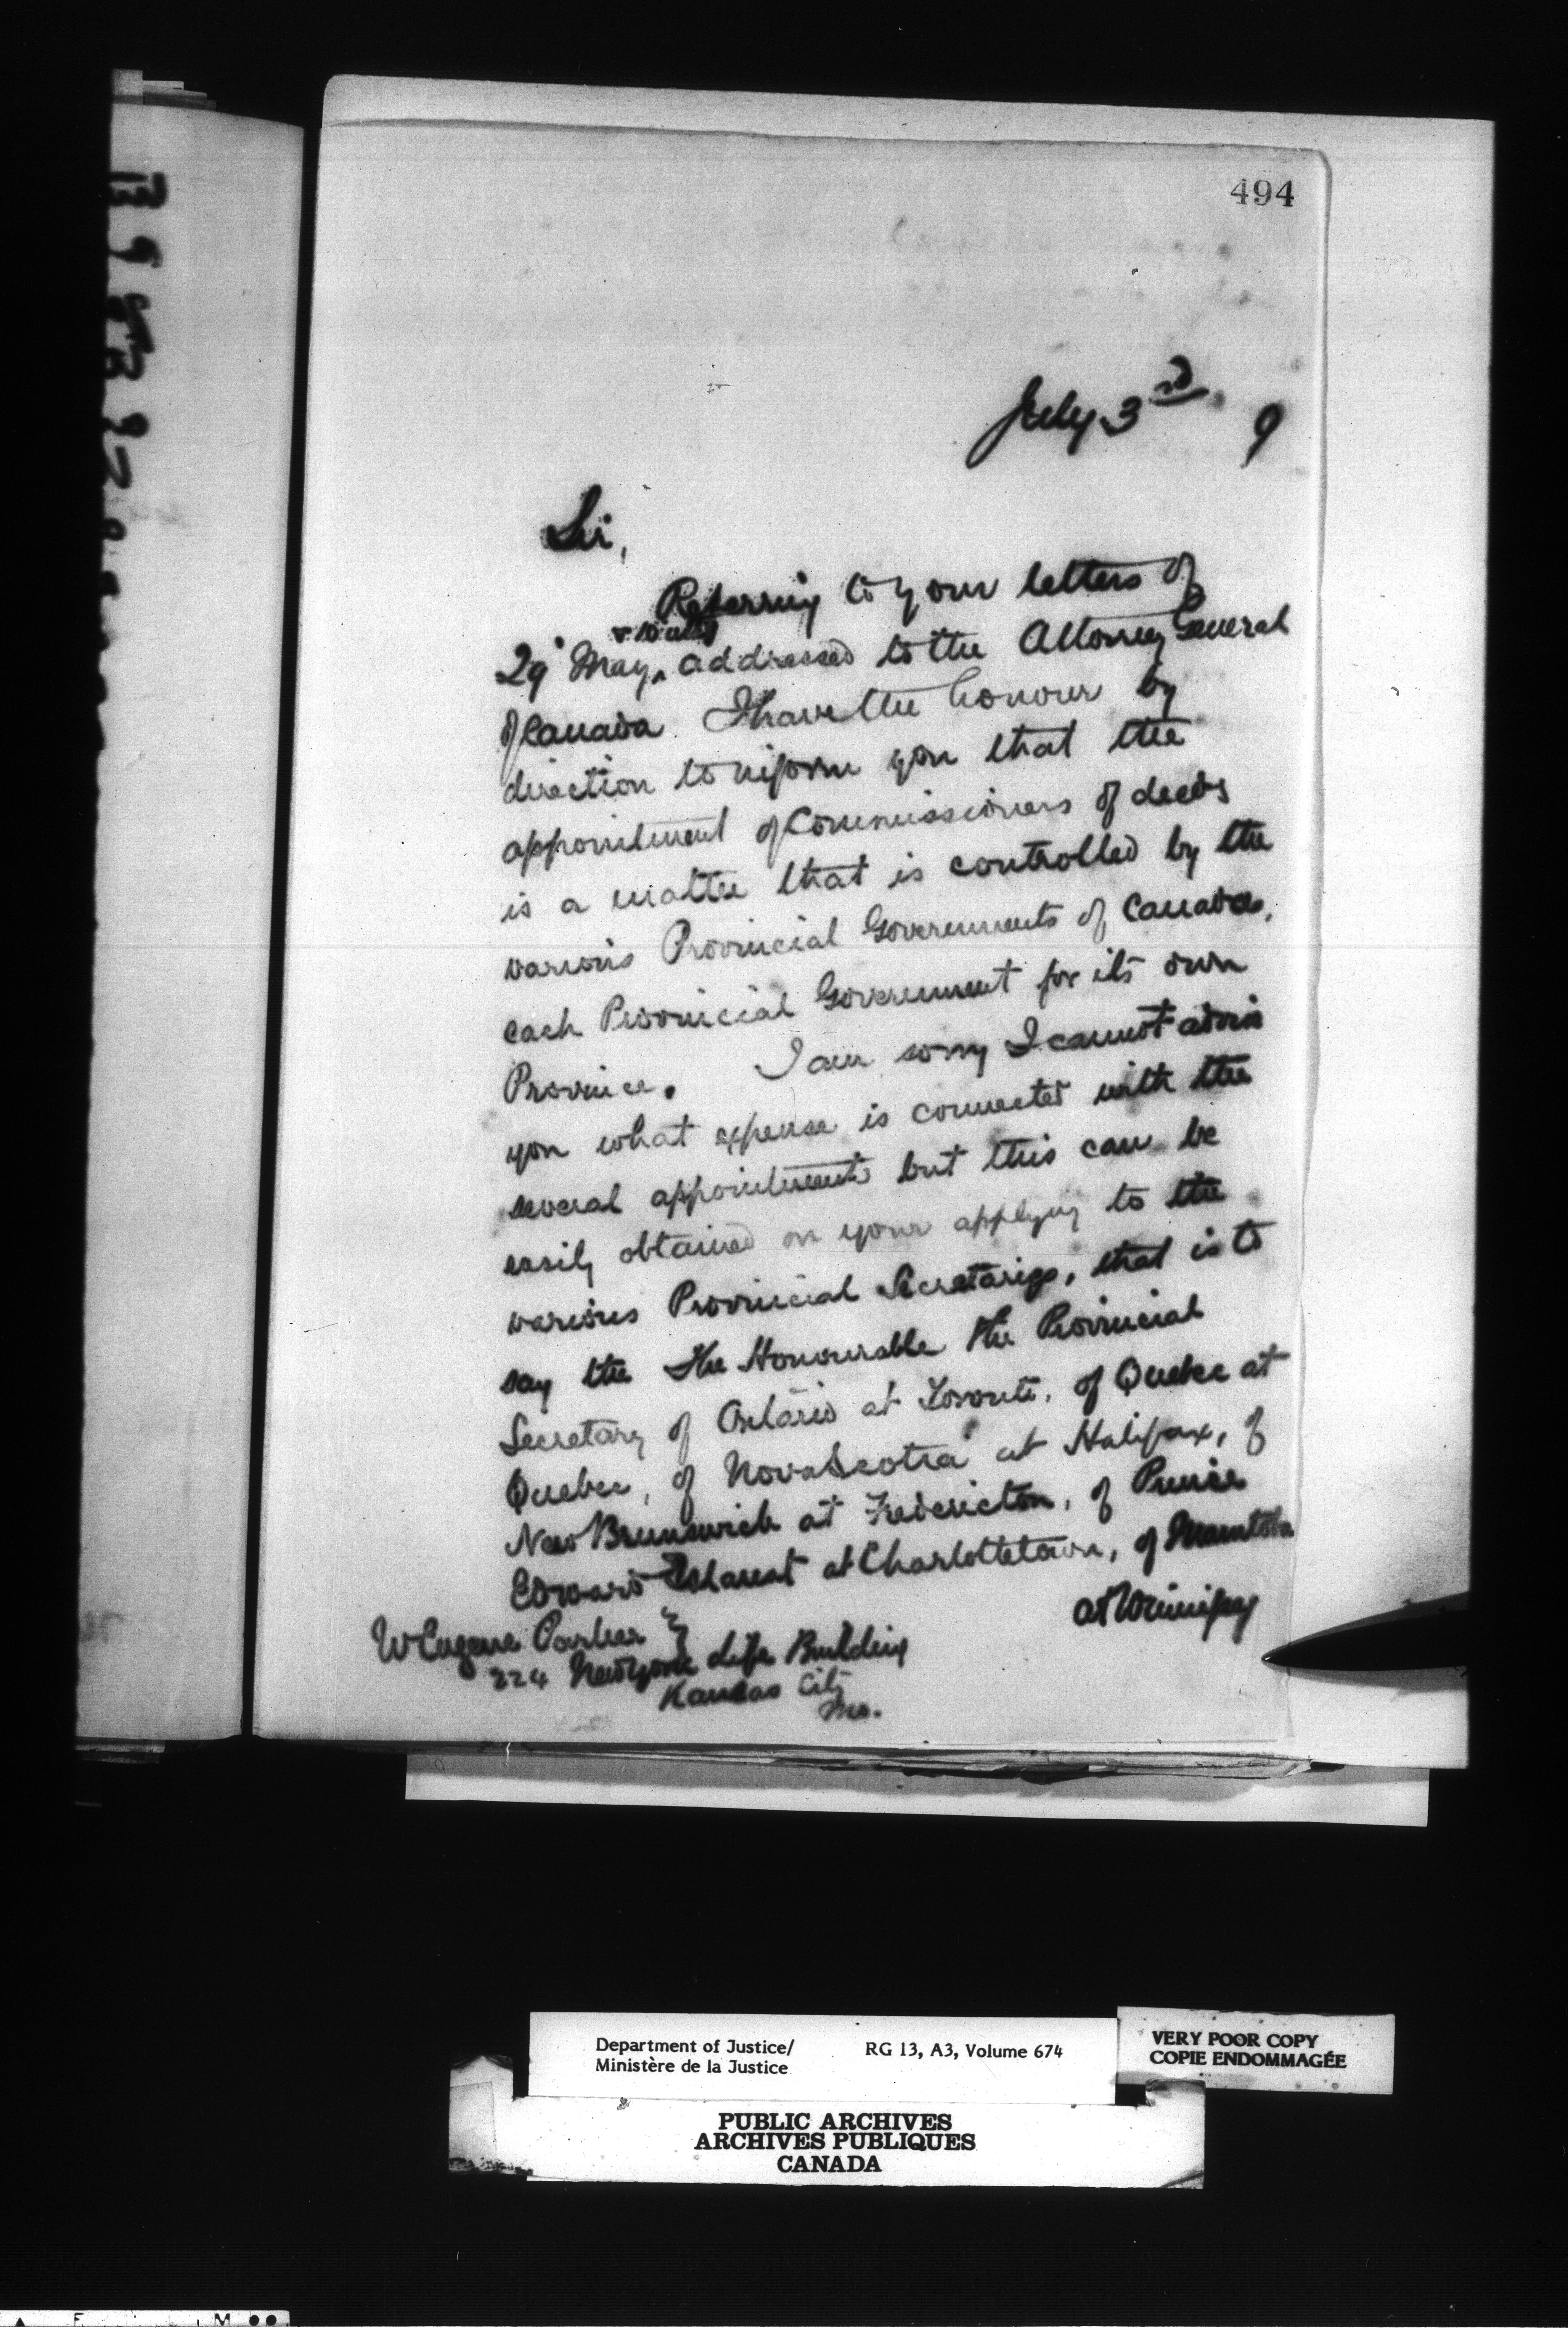 494
July 3rd 9
Sir,
Referring to your letters of
29" May, & 10 ulto addressed to the Attorney General
of Canada. I have the honour by
direction to inform you that the
appointment of Commissioners of deeds
is a matter that is controlled by the
various Provincial Governments of Canada,
each Provincial Government for its own
Province. I am sorry I cannot advise
you what expense is connected with the
several appointments but this can be
easily obtained on your applying to the
various Provincial Secretaries, that is to
say the The Honourable the Provincial
Secretary of Ontario at Toronto, of Quebec at
Quebec, of Nova Scotia at Halifax, of
New Brunswick at Fredericton, of Prince
Edward Island at Charlottetown, of Manitoba
at Winnipeg
W Eugene Parker
224 New York Life Building
Kansas City
Mo.
Department of Justice/
Ministère de la Justice
RG 13, A3, Volume 674
VERY POOR COPY
COPIE ENDOMMAGÉE
PUBLIC ARCHIVES
ARCHIVES PUBLIQUES
CANADA